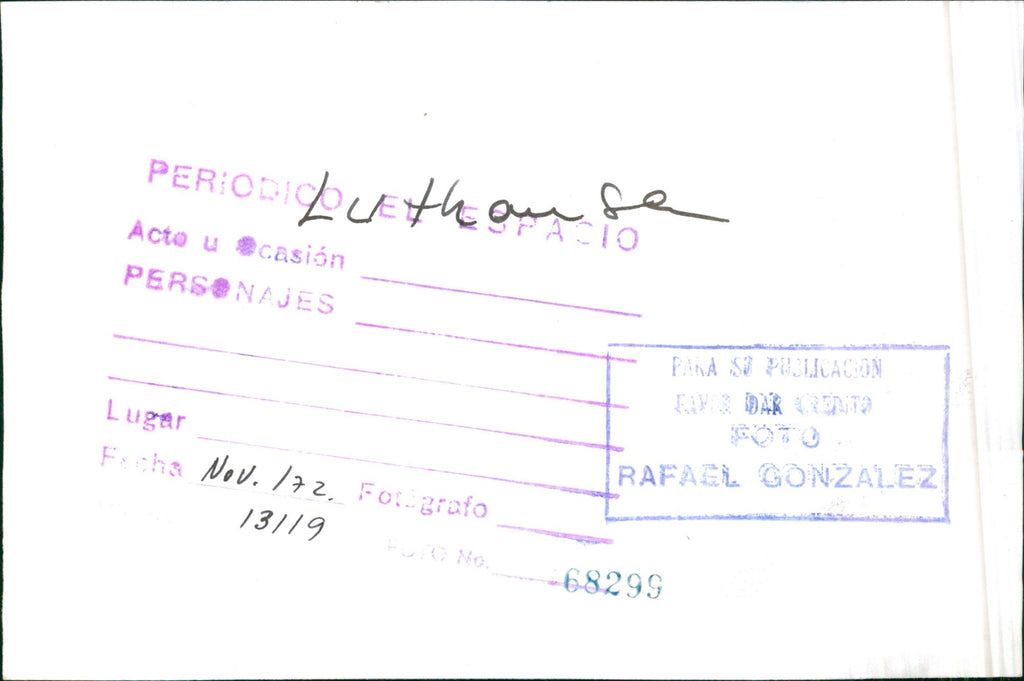 PERIODICO EL ESPACIO
Luthansa
Acto u Ocasión
PERSONAJES
Lugar
Fecha Nov. /72. Fotógrafo
13119
FOTO No. 68299
PARA SU PUBLICACION
FAVOR DAR CREDITO
FOTO
RAFAEL GONZALEZ